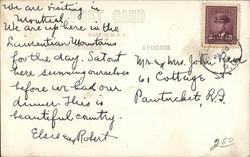 We are visiting in
Montreal
We are up here in the
Laurentian Mountains
for the day. Sat out
here sunning ourselves
before we had our
dinner. This is
beautiful country.
Elsie & Robert
CARD
ADDRESS
Mr. & Mrs. John
61 Cottage St
Pawtucket, R.I.
250